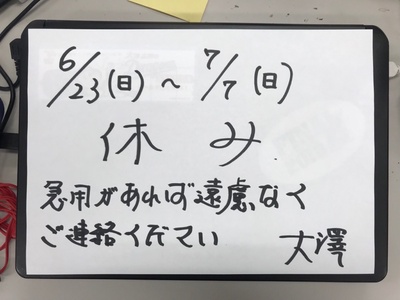 6/23(日)~7/7(日)
休み
急用があれば遠慮なく
ご連絡ください
大澤